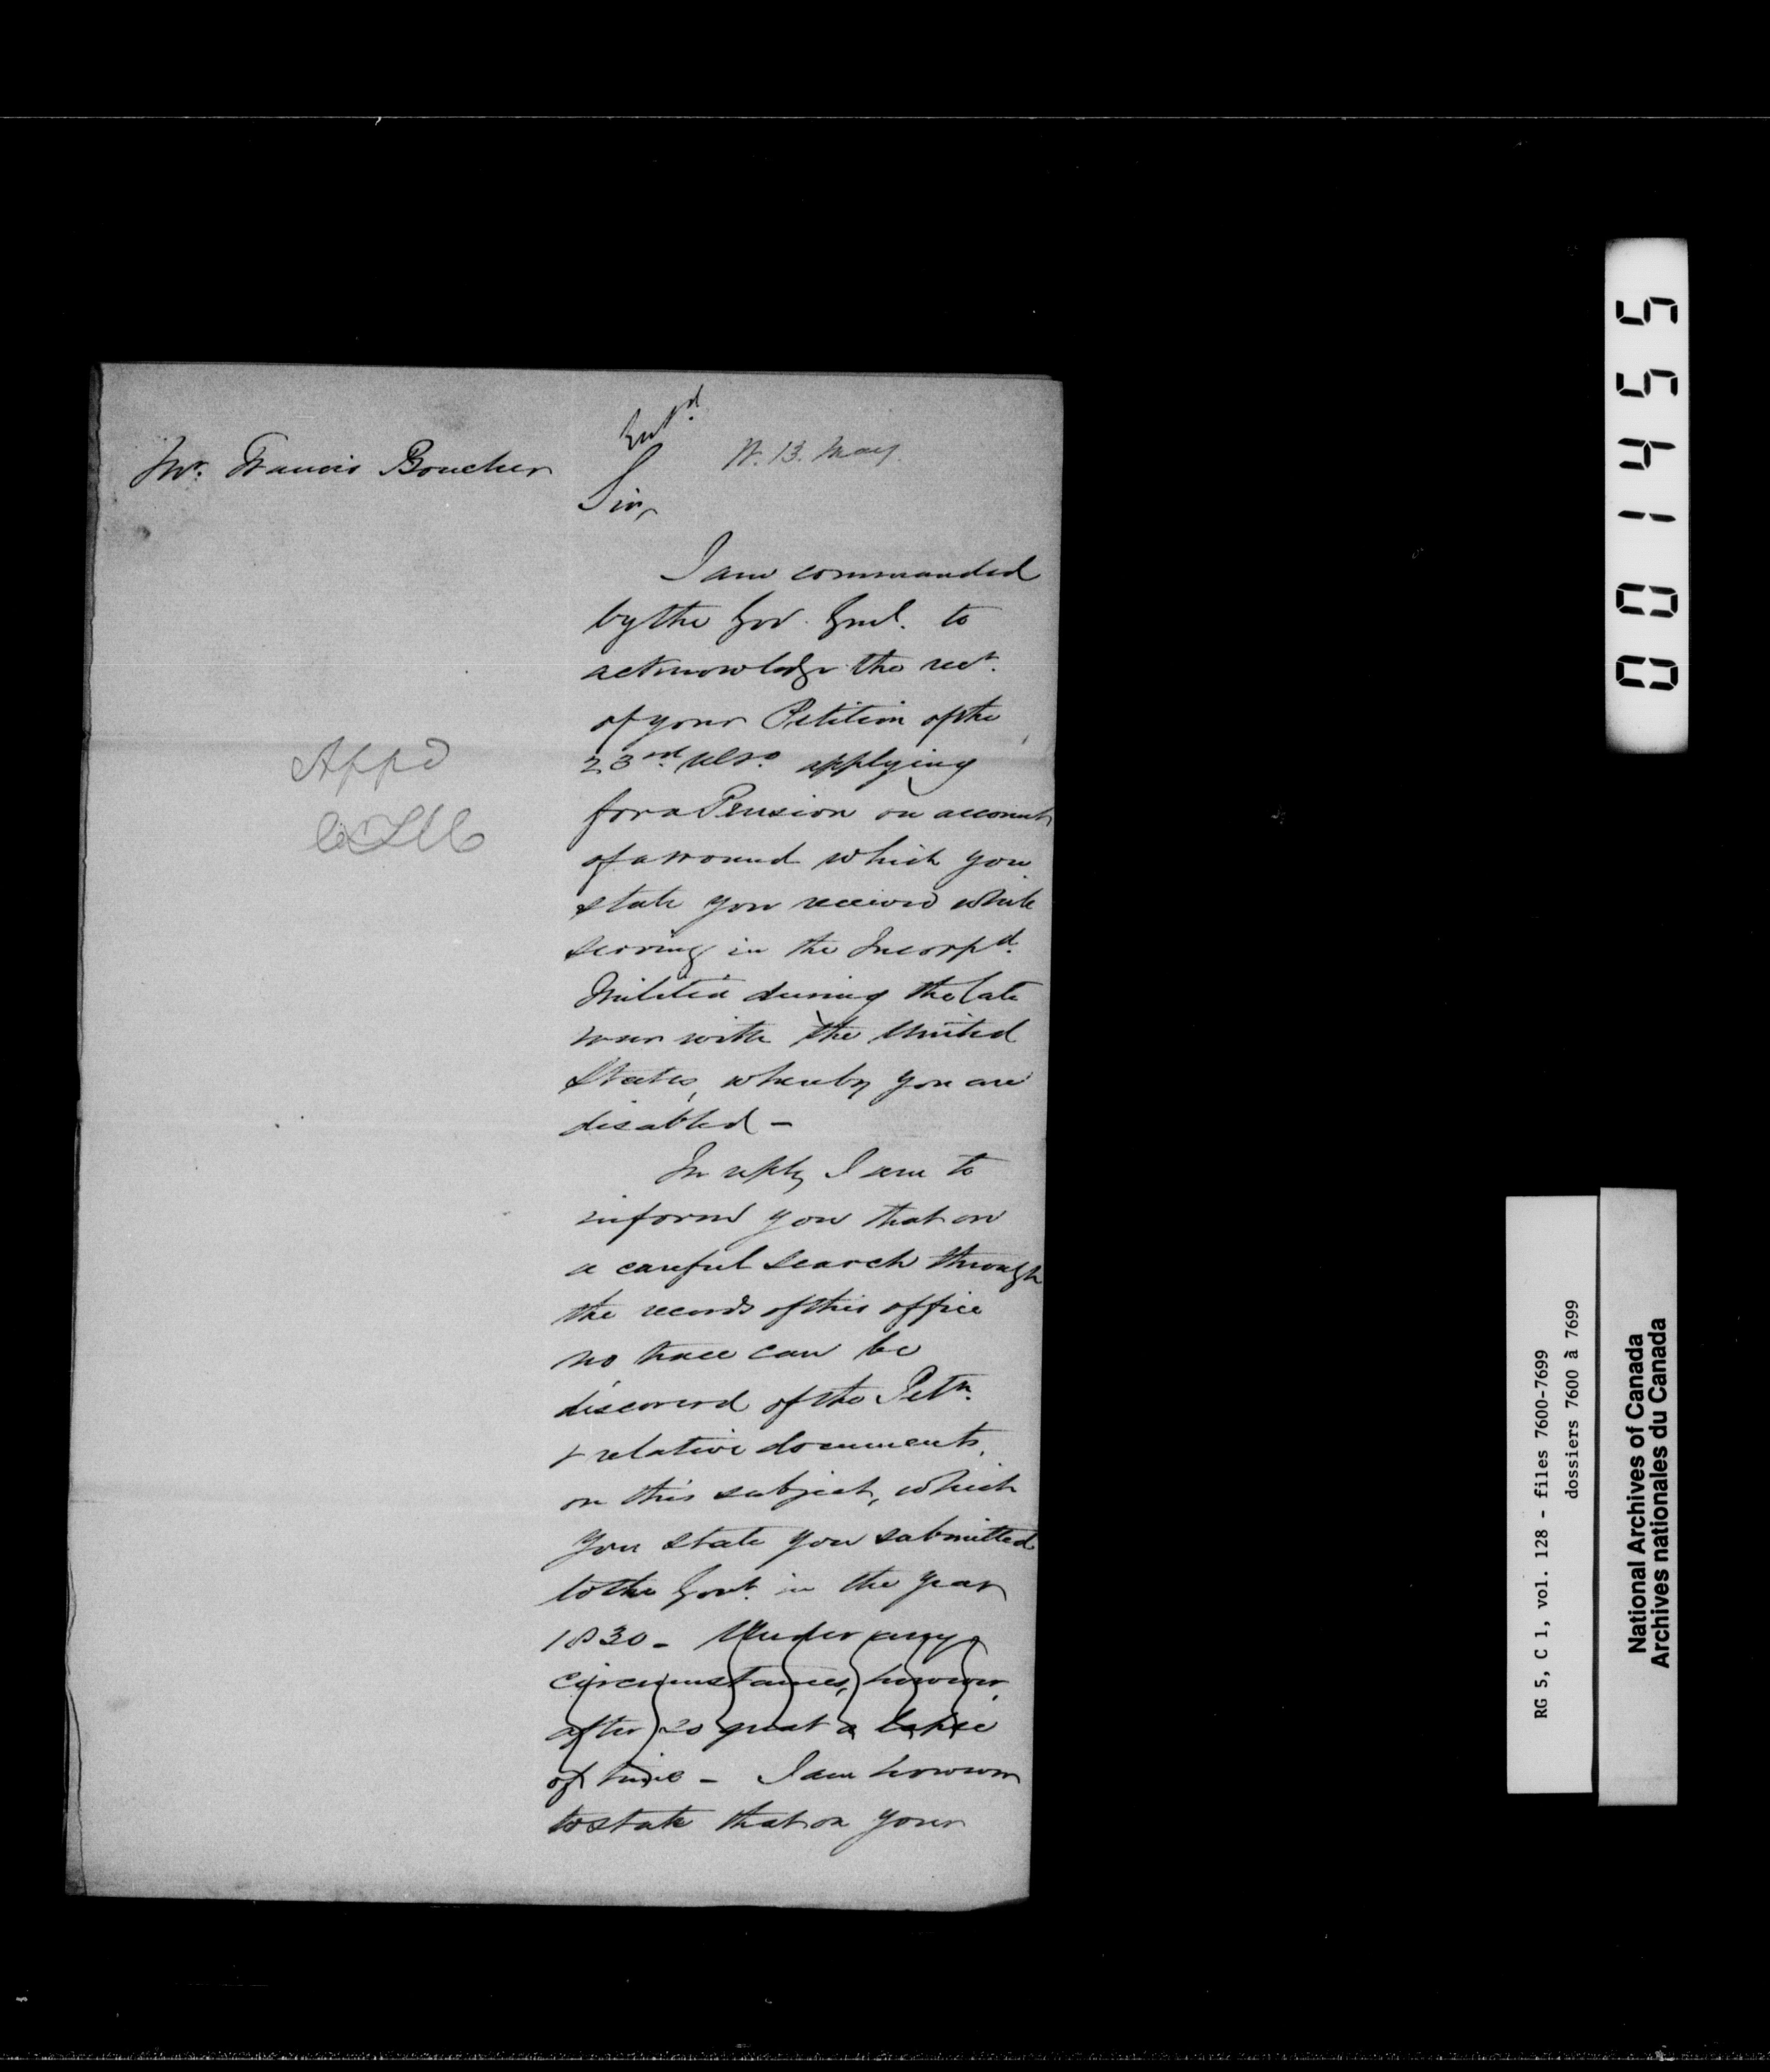 Entd.
W. 13. May.
Mr. Francis Boucher
Sir,
I am commanded
by the Gov. Gnl. to
acknowledge the rect.
of your Petition of the
23rd. ulto. applying
for a Pension on account
of a wound which you
state you received while
serving in the Incorpd.
Militia during the late
war with the United
States, whereby you are
disabled -
In reply I am to
inform you that on
a careful search through
the records of this office
no trace can be
discovered of the Petn.
& relative documents,
on this subject, which
you state you submitted
to the Govt. in the year
1830 - Under any
circumstances, however,
after so great a lapse
of time - I am however
to state that on your
Appd
001455
RG 5, C 1, vol. 128 - files 7600-7699
dossiers 7600 à 7699
National Archives of Canada
Archives nationales du Canada